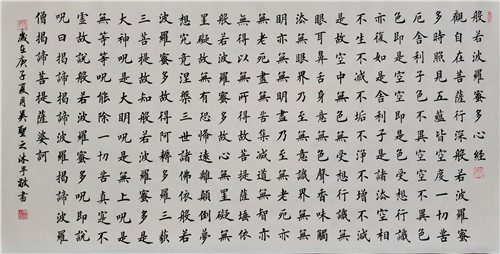 般若波羅蜜多心經
觀自在菩薩行深般若波羅蜜
多時照見五蘊皆空度一切苦
厄舍利子色不異空空不異色
色即是空空即是色受想行識
亦復如是舍利子是諸法空相
不生不滅不垢不淨不增不減
是故空中無色無受想行識無
眼耳鼻舌身意無色聲香味觸
法無眼界乃至無意識界無無
明亦無無明盡乃至無老死亦
無老死盡無苦集滅道無智亦
無得以無所得故菩提薩埵依
般若波羅蜜多故心無罣礙無
罣礙故無有恐怖遠離顛倒夢
想究竟涅槃三世諸佛依般若
波羅蜜多故得阿耨多羅三藐
三菩提故知般若波羅蜜多是
大神呪是大明呪是無上呪是
無等等呪能除一切苦真實不
虛故說般若波羅蜜多呪即說
呪曰揭諦揭諦波羅揭諦波羅
僧揭諦菩提薩婆訶
歲在庚子夏月吳聖之沐手敬書